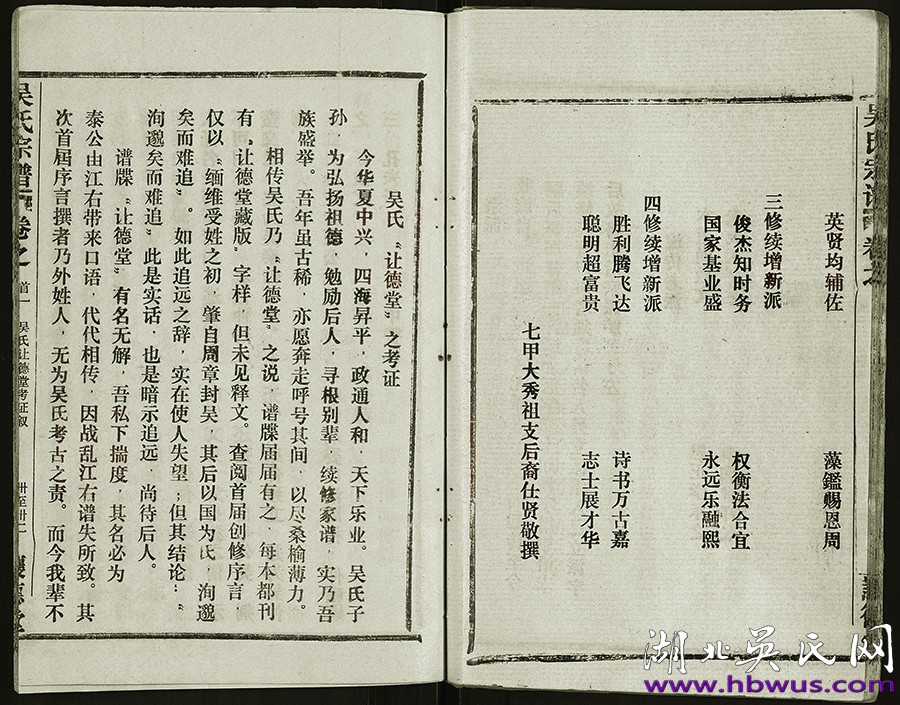 吴氏宗谱 卷之
英贤均辅佐 藻鑑赐恩周
三修续增新派
俊杰知时务 权衡法合宜
国家基业盛 永远乐融熙
四修续增新派
胜利腾飞达 诗书万古嘉
聪明超富贵 志士展才华
七甲大秀祖支后裔仕贤敬撰
吴氏“让德堂”之考证
今华夏中兴，四海昇平，政通人和，天下乐业。吴氏子
孙，为弘扬祖德，勉励后人，寻根别辈，续修家谱，实乃吾
族盛举。吾年虽古稀，亦愿奔走呼号其间，以尽桑榆薄力。
相传吴氏乃“让德堂”之说，谱牒届届有之，每本都刊
有“让德堂藏版”字样，但未见释文。查阅首届创修序言，
仅以“缅维受姓之初，肇自周章封吴，其后以国为氏，洵邈
矣而难追”。如此追远之辞，实在使人失望；但其结论：“
洵邈矣而难追”此是实话，也是暗示追远，尚待后人。
谱牒“让德堂”有名无解，吾私下揣度，其名必为
泰公由江右带来口语，代代相传，因战乱江右谱失所致。其
次首屆序言撰者乃外姓人，无为吴氏考古之责。而今我辈不
吴氏宗谱 卷之 首一 吴氏让德堂考证叙 卅至卅一
湖北吴氏网
www.hbwus.com